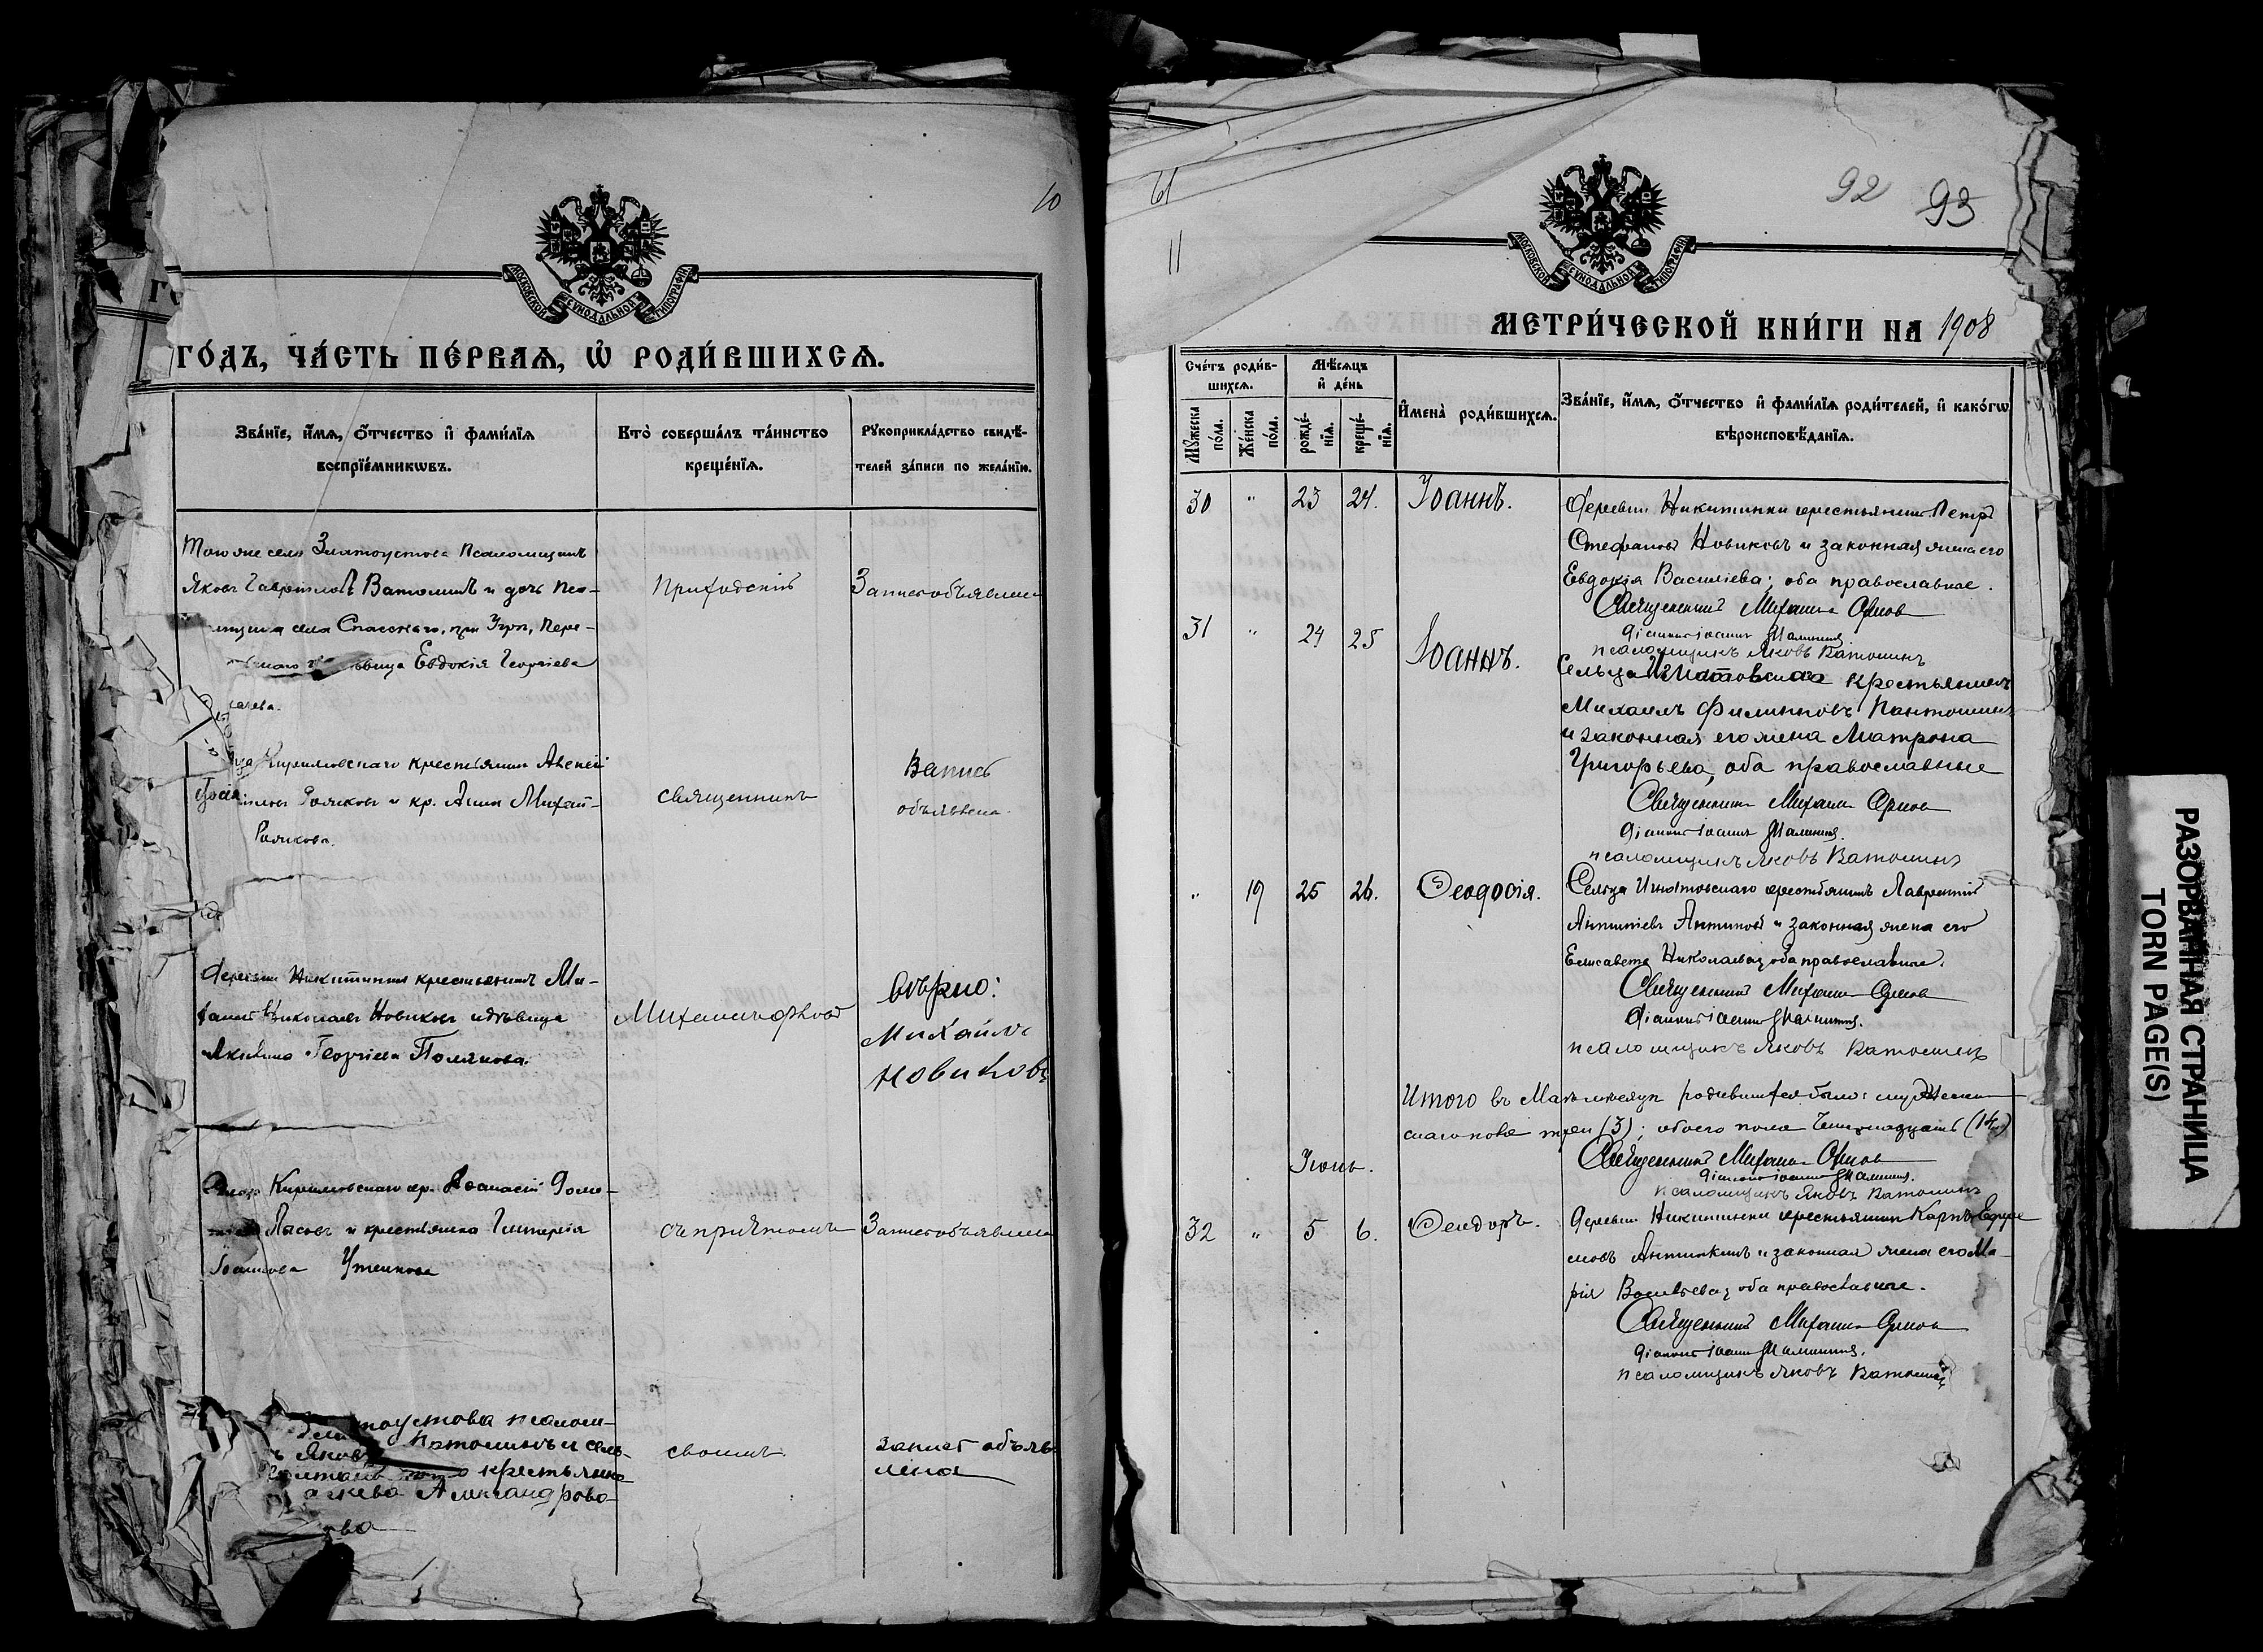 10
МОСКОВСКОЙ СУНОДАЛЬНОЙ ТИПОГРАФІИ
ГО́ДЪ, ЧА́СТЬ ПЕ́РВАѦ, Ѡ҆ РОДИ́ВШИХСѦ.
Зва́нїе, и҆́мѧ, ѻ҆́тчество и҆ фами́лїѧ
воспрїе́мникѡвъ.
Кто̀ соверша́лъ та́инство
креще́нїѧ.
Рꙋкоприкла́дство свидѣ́-
телей за́писи по жела́нїю.
Того же села Златоустова Псаломщикъ
Яковъ Гавріиловъ Ватолинъ и дочь Пса-
села Спасскаго, при Угрѣ,
Евдокія Георгіева
Приходскій
Запись объявлена
Кирилловскаго крестьянинъ Алексій
и кр. Анна
священникъ
Запись
объявлена
Деревни Никитинки крестьянинъ Ми-
Николаевъ Новиковъ и дѣвица
Акилина Георгіева Полякова.
Михаилъ Орловъ
Вѣрно:
Михаилъ
Новиковъ
Кирилловскаго кр.
и крестьянка
Іоаннова
съ причтомъ
Запись объявлена
псалом-
Яковъ Ватолинъ и сель-
крестьянка
Александрова
своимъ
запись объяв-
лена
61
11
92 93
МОСКОВСКОЙ СУНОДАЛЬНОЙ ТИПОГРАФІИ
МЕТРИ́ЧЕСКОЙ КНИ́ГИ НА 1908
Сче́тъ роди́в-
шихсѧ.
Мꙋ́жеска по́ла.
Же́нска по́ла.
Мѣ́сѧцъ
и҆ де́нь
рожде́-нїѧ.
креще́-нїѧ.
И҆мена̀ роди́вшихсѧ.
Зва́нїе, и҆́мѧ, ѻ҆́тчество и҆ фами́лїѧ роди́телей, и҆ како́гѡ
вѣроисповѣ́данїѧ.
30 " 23 24. Іоаннъ.
Деревни Никитинки крестьянинъ Петръ
Стефановъ Новиковъ и законная жена его
Евдокія Василіева; оба православные.
Священникъ Михаилъ Орлов
Діаконъ Іоаннъ Малининъ.
псаломщикъ Яковъ Ватолинъ
31 " 24 25 Іоаннъ.
Сельца Игнатовскаго крестьянинъ
Михаилъ Филипповъ Пантюшинъ
и законная его жена Матрона
Григорьева, оба православные
Священникъ Михаилъ Орлов
Діаконъ Іоаннъ Малининъ.
псаломщикъ Яковъ Ватолинъ
" 19 25 26. Ѳеодосія.
Сельца Игнатовскаго крестьянинъ Лаврентій
Антипіевъ Антиповъ и законная жена его
Елисавета Николаева; оба православные.
Священникъ Михаилъ Орлов
Діаконъ Іоаннъ Малининъ.
псаломщикъ Яковъ Ватолинъ
Итого въ Маѣ мѣсяцѣ родившихся было:
скаго пола три (3); обоего пола
Священникъ Михаилъ Орлов
Діаконъ Іоаннъ Малининъ.
псаломщикъ Яковъ Ватолинъ
Іюнь.
32 " 5 6. Ѳеодоръ.
Деревни Никитинки крестьянинъ Карпъ Ефре-
мовъ и законная жена его Ма-
рія Васильева; оба православные.
Священникъ Михаилъ Орлов
Діаконъ Іоаннъ Малининъ.
псаломщикъ Яковъ Ватолинъ
РАЗОРВАННАЯ СТРАНИЦА
TORN PAGE(S)